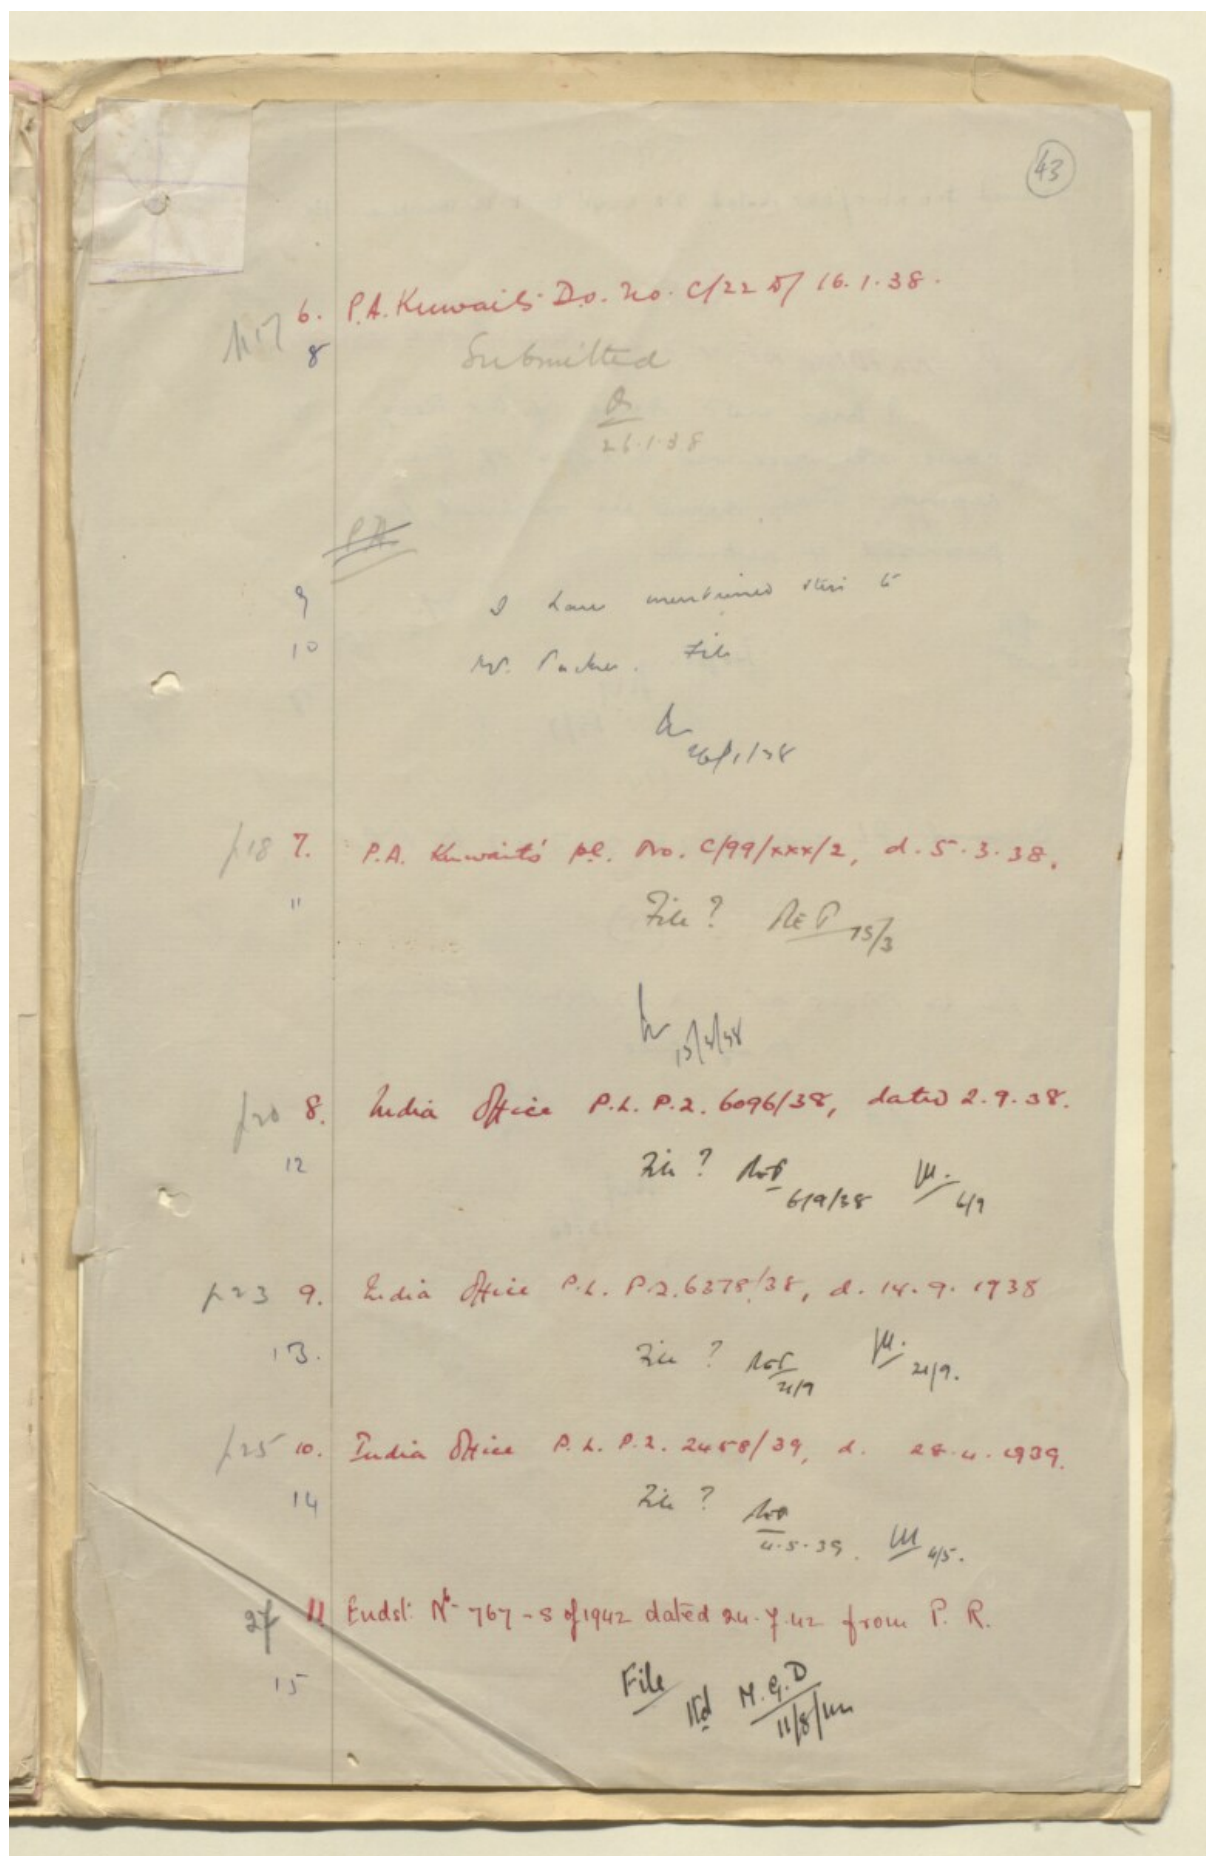 43
p 17 6. P.A. Kuwait's D.o. No. C/22 d/ 16.1.38.
8 Submitted
26.1.38
P.A.
9 I have mentioned this to
10 Mr. Packer. File
26/1/38
p 18 7. P.A. Kuwait's p.l. No. C/99/xxx/2, d. 5.3.38.
11 File? 15/3
15/3/38
p 20 8. India Office P.L. P.Z. 6096/38, dated 2.9.38.
12 File? 6/9/38 6/9
p 23 9. India Office P.L. P.Z. 6378/38, d. 14.9.1938
13. File? 21/9 21/9.
p 25 10. India Office P.L. P.Z. 2458/39, d. 28.4.1939.
14 File? 4.5.39. 4/5.
27 11 Endst: No 767-S of 1942 dated 24.7.42 from P. R.
15 File Itd M.G.D
11/8/42